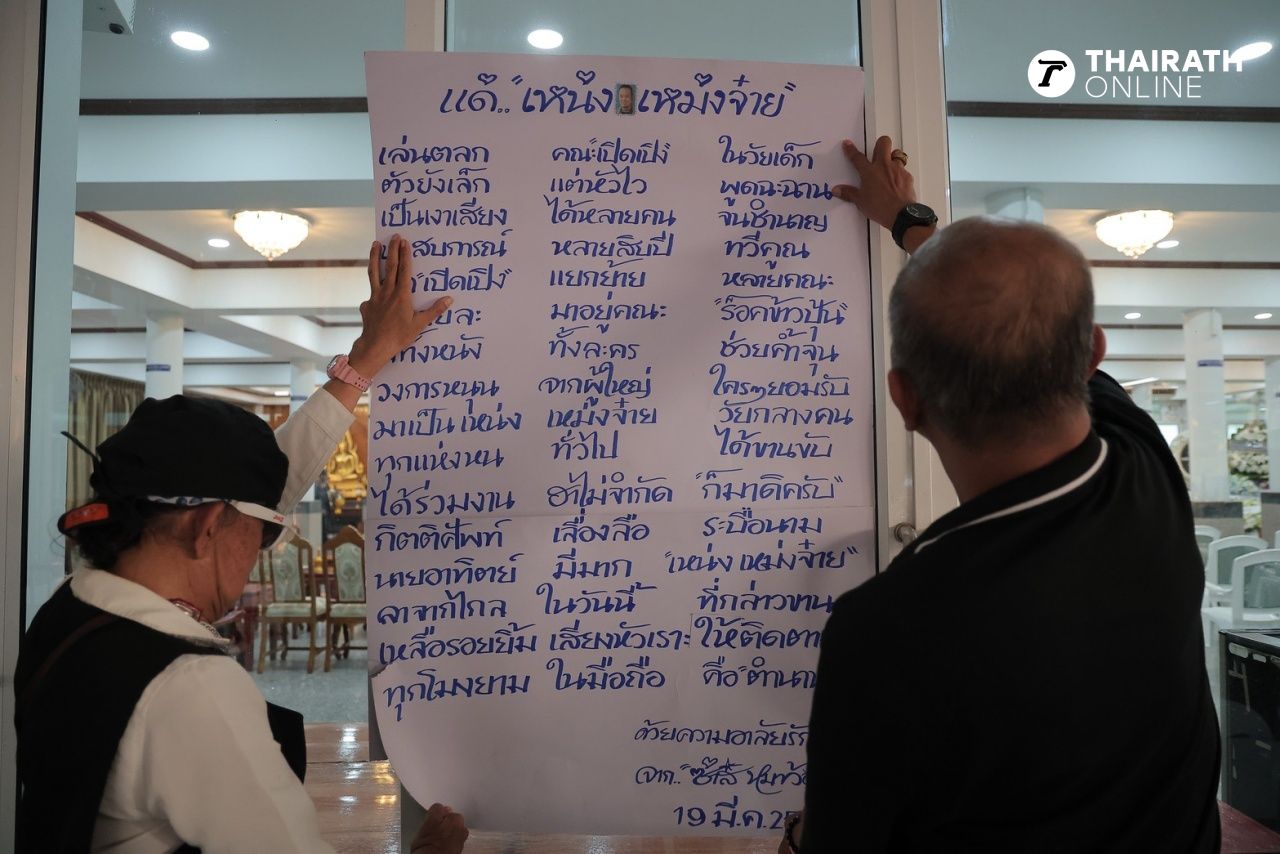 THAIRATH
ONLINE
แด่.. "เหน่ง เหม่งจ๋าย"
เล่นตลก คณะ"เปิดเปิง" ในวัยเด็ก
ตัวยังเล็ก แต่หัวไว พูดฉะฉาน
เป็นเงาเสียง ได้หลายคน จนชำนาญ
สบการณ์ หลายสิบปี ทวีคูณ
"เปิดเปิง" แยกย้าย หลายคณะ
มาอยู่คณะ "ร็อคข้าวปุ้น"
ทั้งหนัง ทั้งละคร ช่วยค้ำจุน
วงการหนุน จากผู้ใหญ่ ใครๆยอมรับ
มาเป็น เหน่ง เหม่งจ๋าย วัยกลางคน
ทุกแห่งหน ทั่วไป ได้ขานขับ
ได้ร่วมงาน ฮาไม่จำกัด "ก็มาดิครับ"
กิตติศัพท์ เลื่องลือ ระบือนาม
นายอาทิตย์ มีมาก "เหน่ง เหม่งจ๋าย"
ลาจากไกล ในวันนี้ ที่กล่าวขาน
เหลือรอยยิ้ม เสียงหัวเราะ ให้ติดตา
ทุกโมงยาม ในมือถือ คือ"ตำนา
ด้วยความอาลัยรั
จาก..
19 มี.ค.2